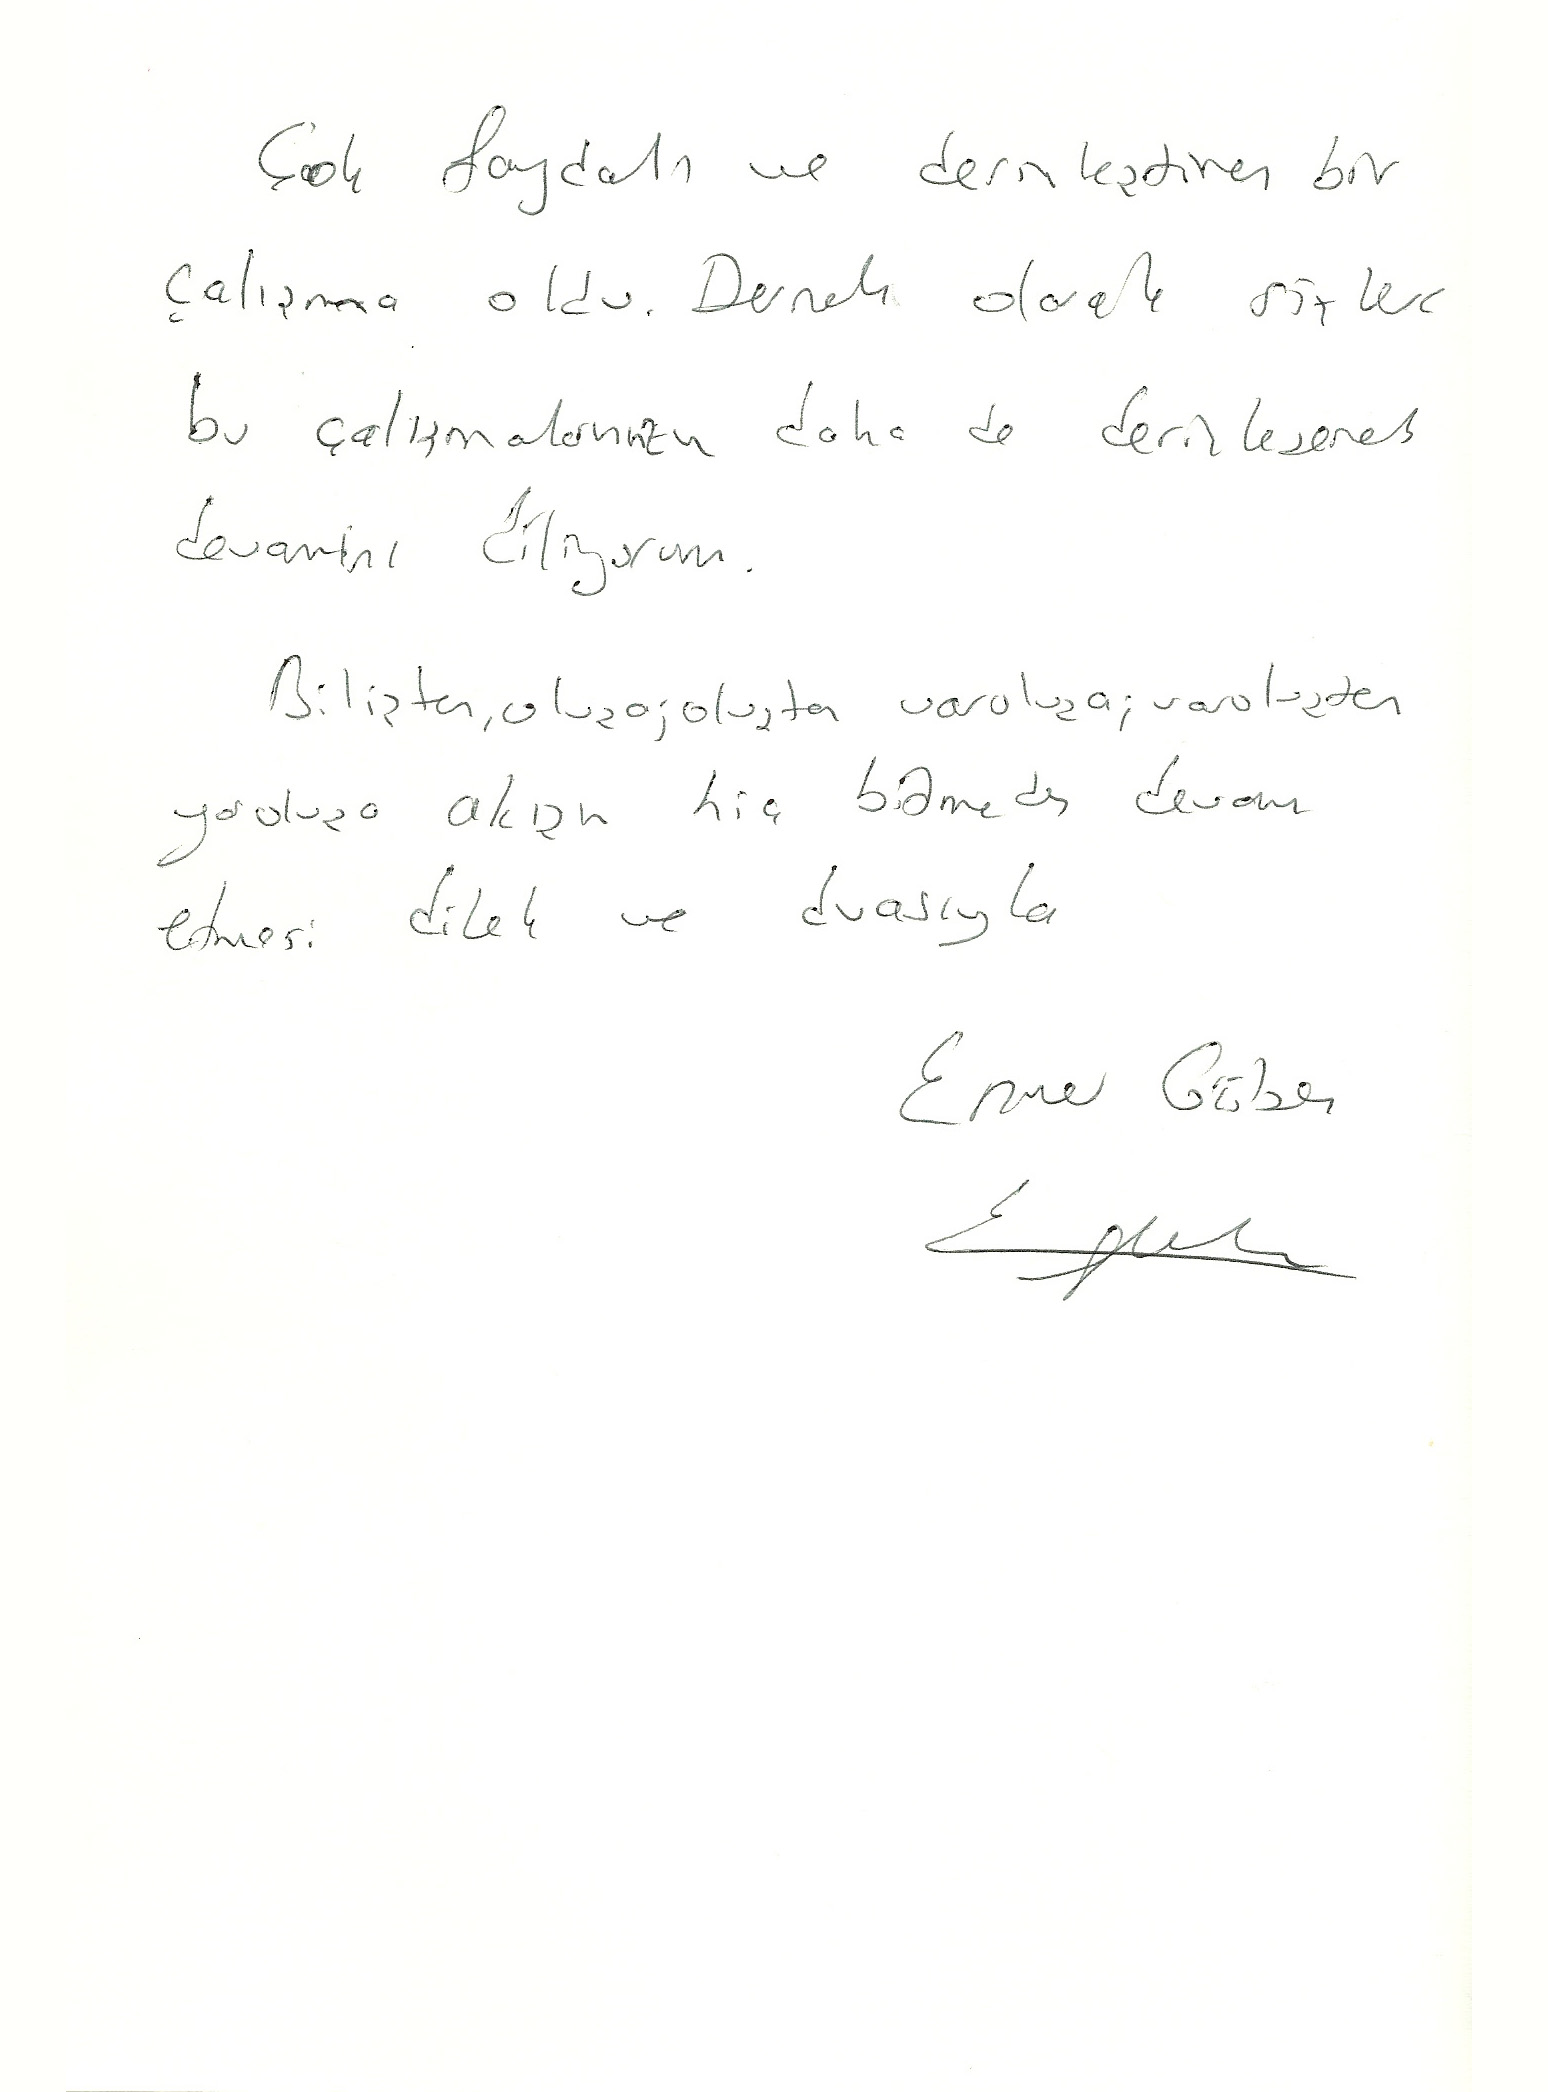 Çok faydalı ve derinleştiren bir
çalışma oldu. Dernek olarak sizlere
bu çalışmalarınızın daha da derinleşerek
devamını diliyorum.
Bilişten, oluşa; oluştan varoluşa; varoluştan
yaroluşa akışın hiç bitmeden devam
etmesi dilek ve duasıyla